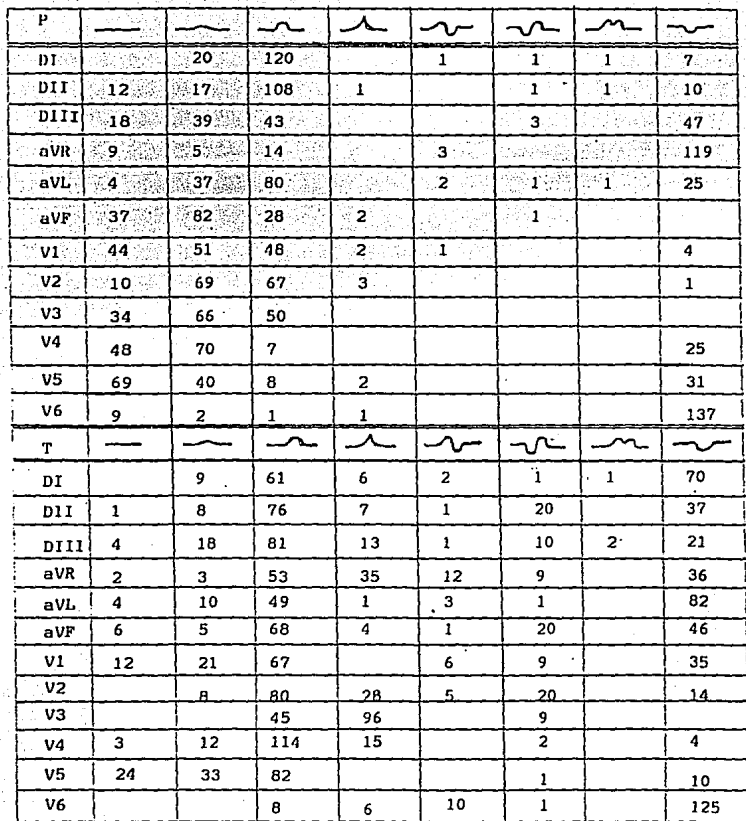 P
DI 20 120 1 1 1 7
DII 12 17 108 1 1 1 10
DIII 18 39 43 3 47
aVR 9 5 14 3 119
aVL 4 37 80 2 1 1 25
aVF 37 82 28 2 1
V1 44 51 48 2 1 4
V2 10 69 67 3 1
V3 34 66 50
V4 48 70 7 25
V5 69 40 8 2 31
V6 9 2 1 1 137
T
DI 9 61 6 2 1 1 70
DII 1 8 76 7 1 20 37
DIII 4 18 81 13 1 10 2 21
aVR 2 3 53 35 12 9 36
aVL 4 10 49 1 3 1 82
aVF 6 5 68 4 1 20 46
V1 12 21 67 6 9 35
V2 8 80 28 5 20 14
V3 45 96 9
V4 3 12 114 15 2 4
V5 24 33 82 1 10
V6 8 6 10 1 125